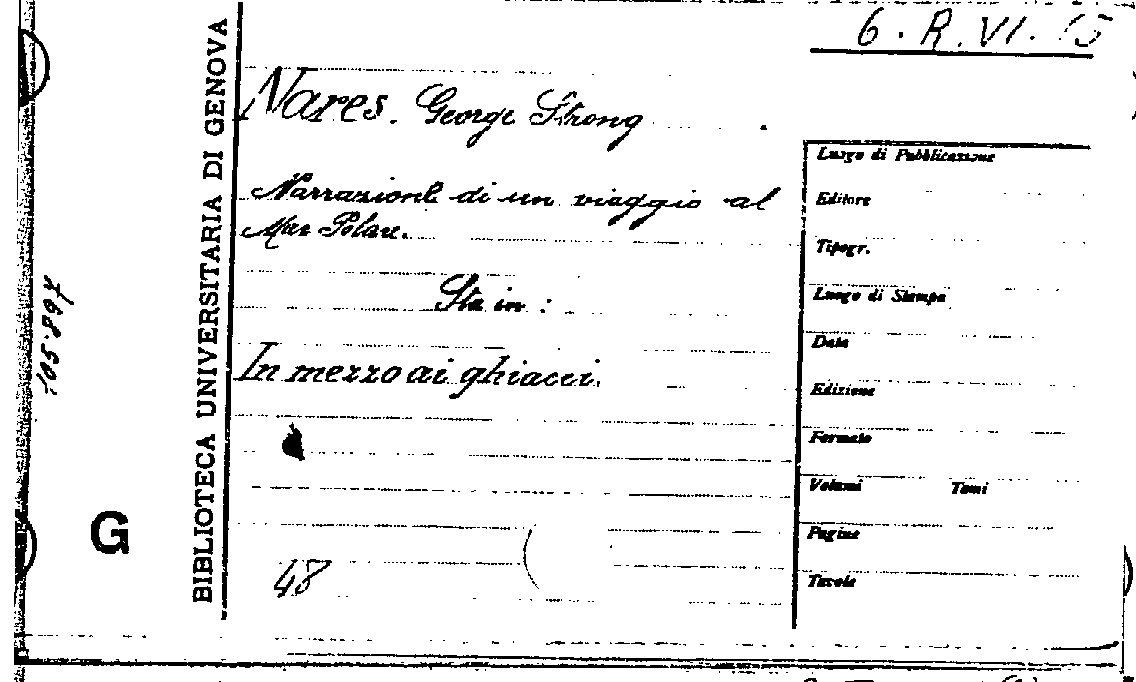 6. R. VI. 15
Nares. George Strong
Narrazione di un viaggio al
Mar Polare.
Sta in :
In mezzo ai ghiacci.
48
BIBLIOTECA UNIVERSITARIA DI GENOVA
105.897
G
Luogo di Pubblicazione
Editore
Tipogr.
Luogo di Stampa
Data
Edizione
Formato
Volumi Tomi
Pagine
Tavole